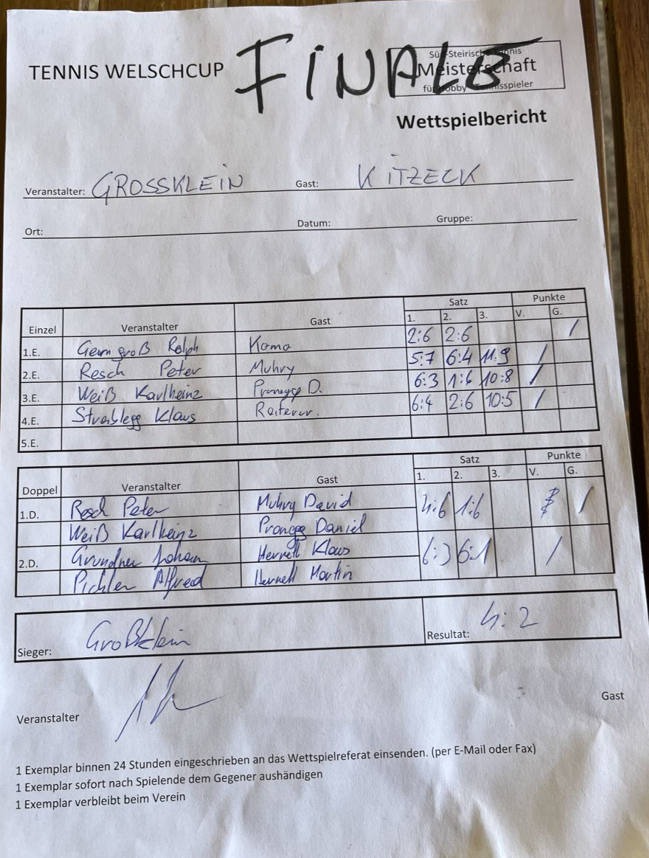 TENNIS WELSCHCUP
FINALE
Süd-Steirische Tennis
Meisterschaft
für Hobby-Tennisspieler
Wettspielbericht
Veranstalter: GROSSKLEIN Gast: KITZECK
Ort: Datum: Gruppe:
Einzel Veranstalter Gast Satz Punkte
1. 2. 3. V. G.
1.E. Gerngroß Ralph 2:6 2:6 /
2.E. Resch Peter Muhry 5:7 6:4 11:9 /
3.E. Weiß Karlheinz D. 6:3 1:6 10:8 /
4.E. Klaus Reiterer. 6:4 2:6 10:5 /
5.E.
Doppel Veranstalter Gast Satz Punkte
1. 2. 3. V. G.
1.D. Resch Peter Muhry David 4:6 1:6 /
Weiß Karlheinz Daniel
2.D. Grundner Johann Klaus 6:3 6:1 /
Pichler Alfred Martin
Sieger: Großklein Resultat: 4:2
Veranstalter Gast
1 Exemplar binnen 24 Stunden eingeschrieben an das Wettspielreferat einsenden. (per E-Mail oder Fax)
1 Exemplar sofort nach Spielende dem Gegener aushändigen
1 Exemplar verbleibt beim Verein